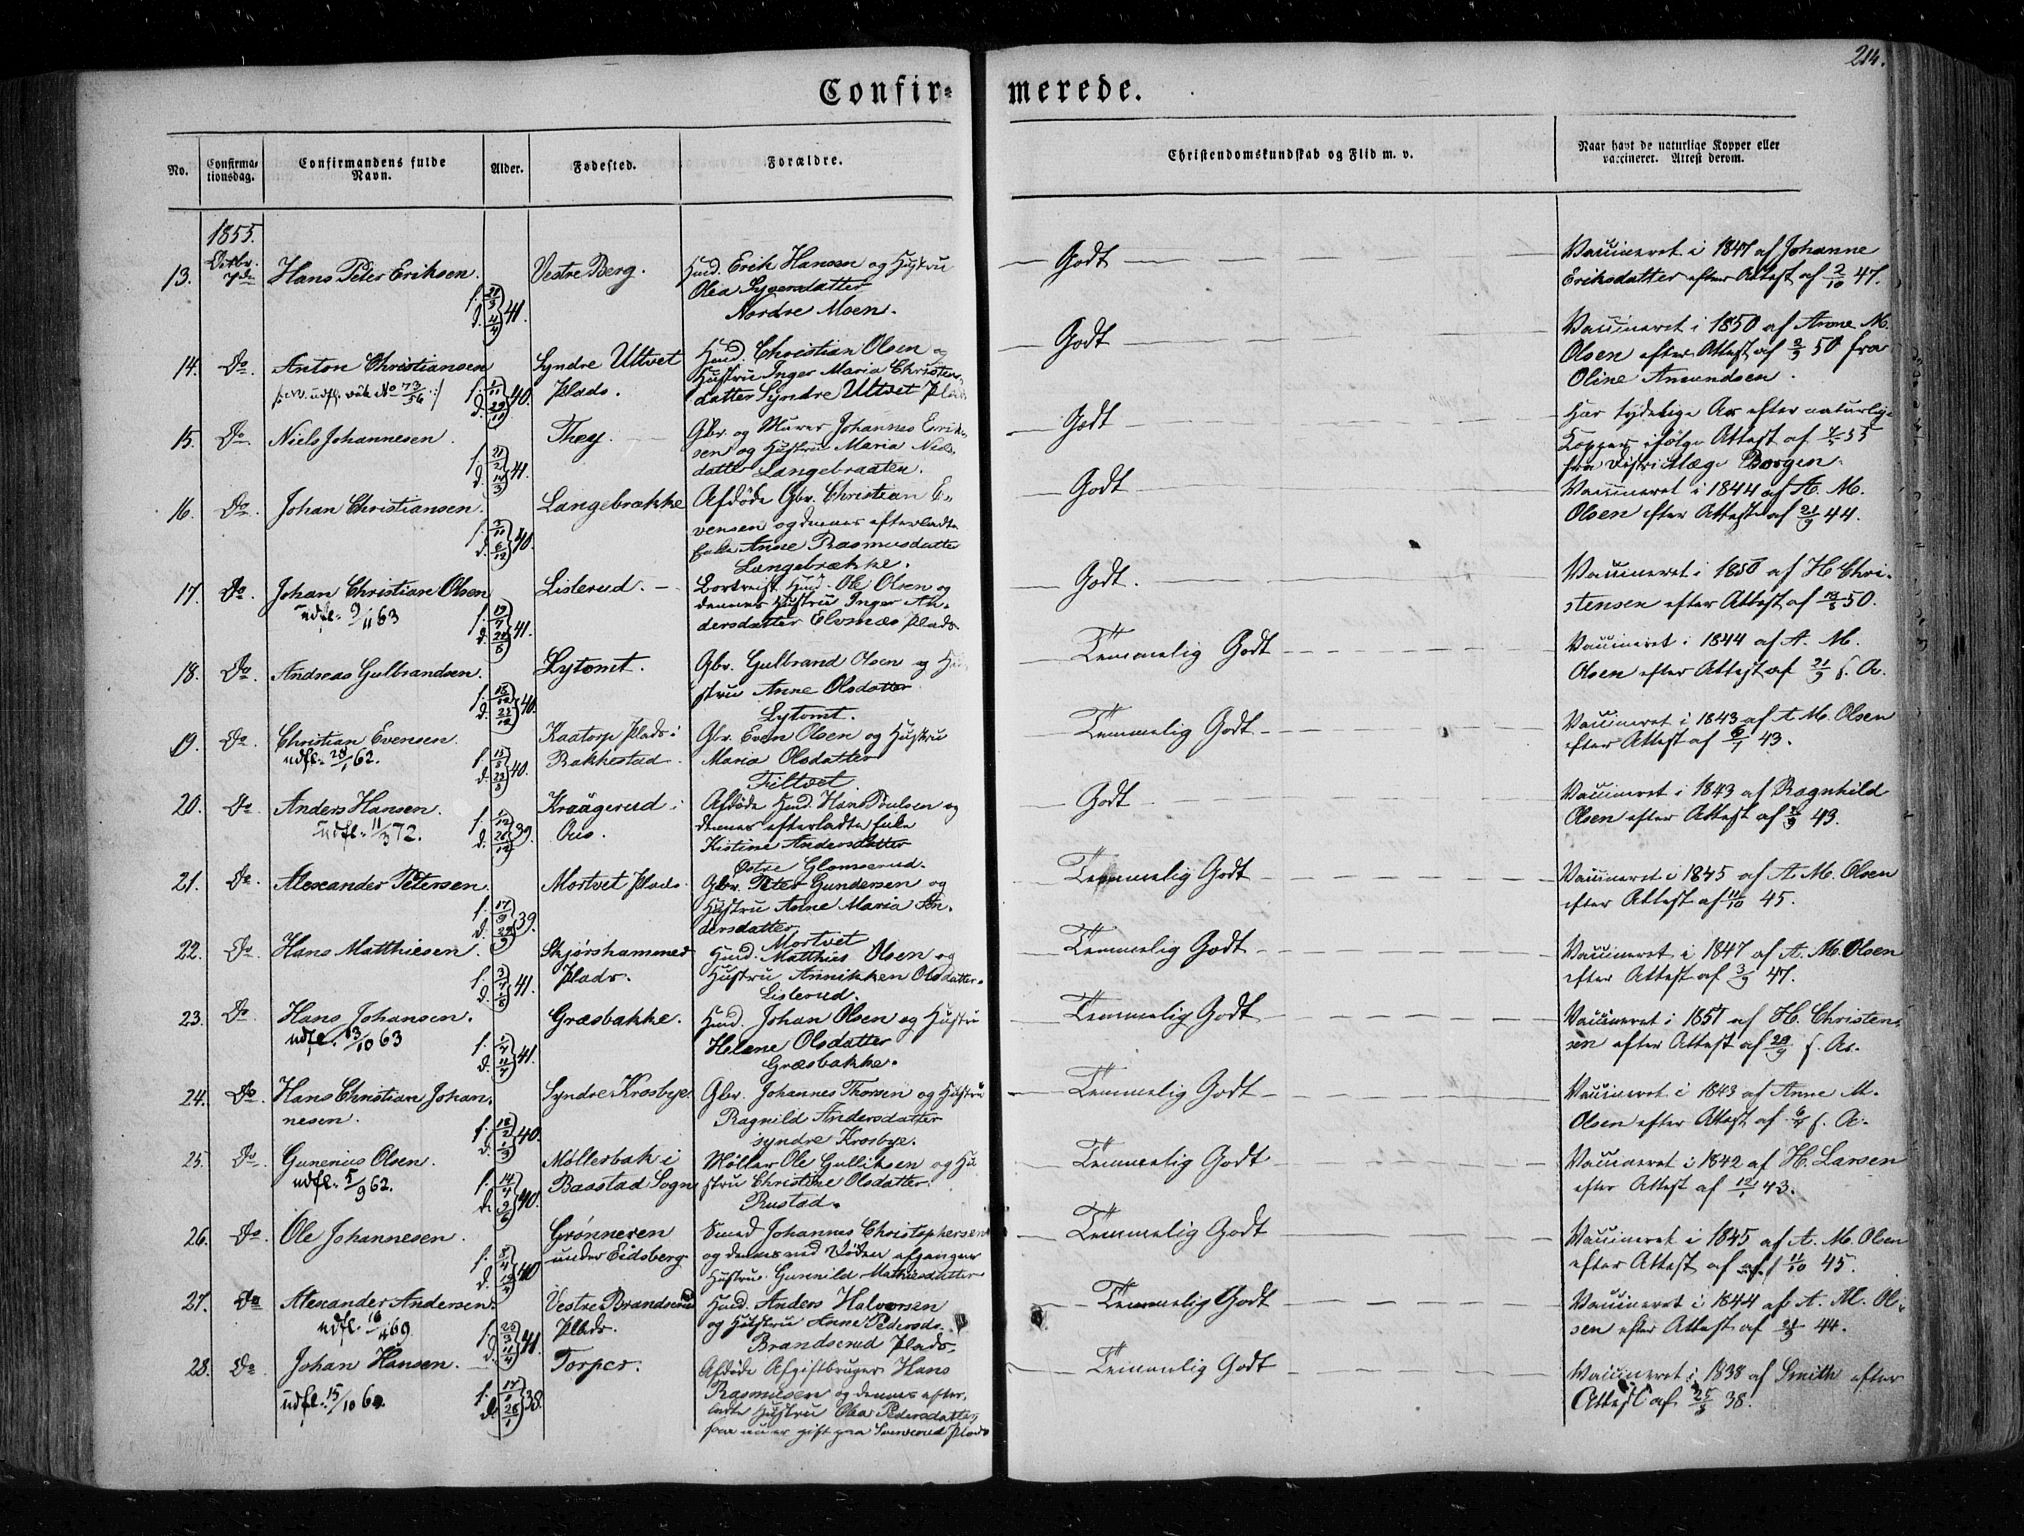 214.
Confirmerede.
No.
Confirmationsdag.
Confirmandens fulde Navn.
Alder.
Fødested.
Forældre.
Christendomskundskab og Flid m. v.
Naar havt de naturlige Kopper eller vaccineret. Attest derom.
1855.
Octbr. 7de
13. Hans Peter Eriksen. f. 21/3 d. 4/4 41. Vestre Berg.
Huusmd. Erik Hansen og Hustru
Olea Syversdatter
Nordre Moen.
Godt
Vaccineret i 1847 af Johanne
Eriksdatter efter Attest af 2/10 47.
14. Do. Anton Christiansen f. 1/11 d. 29/11 40. Syndre Ultvet
Plads.
Huusmd. Christian Olsen og
Hustru Inger Maria Christens
datter Syndre Ultvet Plads
Godt
Vaccineret i 1850 af Anne M.
Olsen efter Attest af 2/9 50 fra
Oline Amundsen.
15. Do. Niels Johannesen. f. 11/2 d. 14/3 41. They.
Gbr. og Murer Johannes Erik-
sen og Hustru Maria Niels-
datter Langebraaten.
Godt
Har tydelige Ar efter naturlige
Kopper ifølge Attest af 55
fra Districtslæge Borgen.
16. Do. Johan Christiansen. f. 2/11 d. 6/12 40. Langebrække
Afdøde Gbr. Christian E-
vensen og dennes efterladte
Enke Anne Rasmusdatter
Langebrække.
Godt
Vaccineret i 1844 af A. M.
Olsen efter Attest af 21/9 44.
17. Do. Johan Christian Olsen
udfl. 9/11 63 41. Listerud.
Bortreist Huusmd. Ole Olsen og
dennes Hustru Inger An-
dersdatter Elvenæs Plads.
Godt.
Vaccineret i 1850 af H Chri-
stensen efter Attest af 50.
18. Do. Andreas Gulbrandsen. f. 15/12 d. 25/12 40. Lytomt.
Gbr. Gulbrand Olsen og Hu-
stru Anne Olsdatter
Lytomt.
Temmelig Godt
Vaccineret i 1844 af A. M.
Olsen efter Attest af 21/9 s. A.
19. Do. Christian Evensen.
udfl. 28/1 62. 40. Kaatorp Plads i
Rakkestad
Gbr. Even Olsen og Hustru
Maria Olsdatter
Tiltvet.
Temmelig Godt
Vaccineret i 1843 af A M. Olsen
efter Attest af 6/7 43.
20. Do. Anders Hansen.
udfl. 11/3 72. 39. Kraagerud i
Ous.
Afdøde Huusmd. Hans Poulsen og
dennes efterladte Enke
Kistine Andersdatter
Østre Glomserud.
Godt
Vaccineret i 1843 af Ragnhild
Olsen efter Attest af 43.
21. Do. Alexander Petersen. f. 17/9 d. 29/9 39. Mortvet Plads.
Gbr. Peter Gundersen og
Hustru Anne Maria An-
dersdatter
Mortvet
Temmelig Godt
Vaccineret i 1845 af A. M. Olsen
efter Attest af 11/10 45.
22. Do. Hans Matthiesen. 41. Skjørshammer
Plads.
Huusmd. Matthias Olsen og
Hustru Annikken Olsdatter.
Listerud.
Temmelig Godt
Vaccineret i 1847 af A. M. Olsen
efter Attest af 3/9 47.
23. Do. Hans Johansen.
udfl. 13/10 63 f. 1/4 d. 11/4 41. Græsbakke.
Huusmd. Johan Olsen og Hustru
Helene Olsdatter
Græsbakke.
Temmelig Godt
Vaccineret i 1851 af H. Christen-
sen efter Attest af 29/9 s. Ar.
24. Do. Hans Christian Johan-
nesen. f. 18/2 d. 1/3 40. Syndre Krosbye.
Gbr. Johannes Thorsen og Hustru
Ragnild Andersdatter
syndre Krosbye.
Temmelig Godt
Vaccineret i 1843 af Anne M.
Olsen efter Attest af s. A.
25. Do. Gunerius Olsen.
udfl. 5/9 62. 40. Møllerbak i
Baastad Sogn
Møller Ole Gulliksen og Hu
stru Christine Olsdatter.
Rustad.
Temmelig Godt
Vaccineret i 1842 af H. Larsen
efter Attest af 12/1 43.
26. Do. Ole Johannesen. 40 Grønneren
under Eidsberg
Smed Johannes Christophersen
og dennes ved Døden afgangne
Hustru Gunnild Mathisdatter
Temmelig Godt
Vaccineret i 1845 af A. M. Olsen
efter Attest af 11/10 45.
27. Do. Alexander Andersen.
udfl. 16/4 69 f. 25/3 d. 11/4 41. Vestre Brandserud
Plads.
Huusmd. Anders Halvorsen
og Hustru Anne Pedersdr.
Brandserud Plads.
Temmelig Godt
Vaccineret i 1844 af A. M. Ol-
sen efter Attest af 44.
28. Do. Johan Hansen.
udfl. 15/10 60. f. 17/1 d. 28/1 38. Torper.
Afdøde Afgiftbruger Hans
Rasmusen og dennes efter-
ladte Hustru Olea Pedersdatter,
som nu er gift paa Plads
Temmelig Godt
Vaccineret i 1838 af Smith efter
Attest af 38.